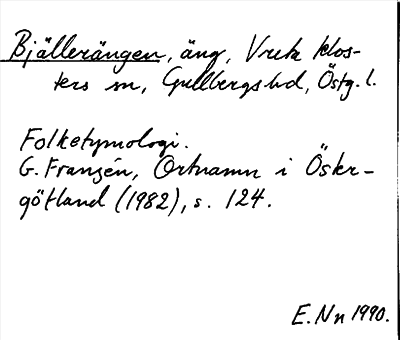 Bjällerängen, äng, Vreta klos-
ters sn, Gullbergs hd, Östg. l.
Folketymologi.
G. Franzén, Ortnamn i Öster-
götland (1982), s. 124.
E. Nn 1990.